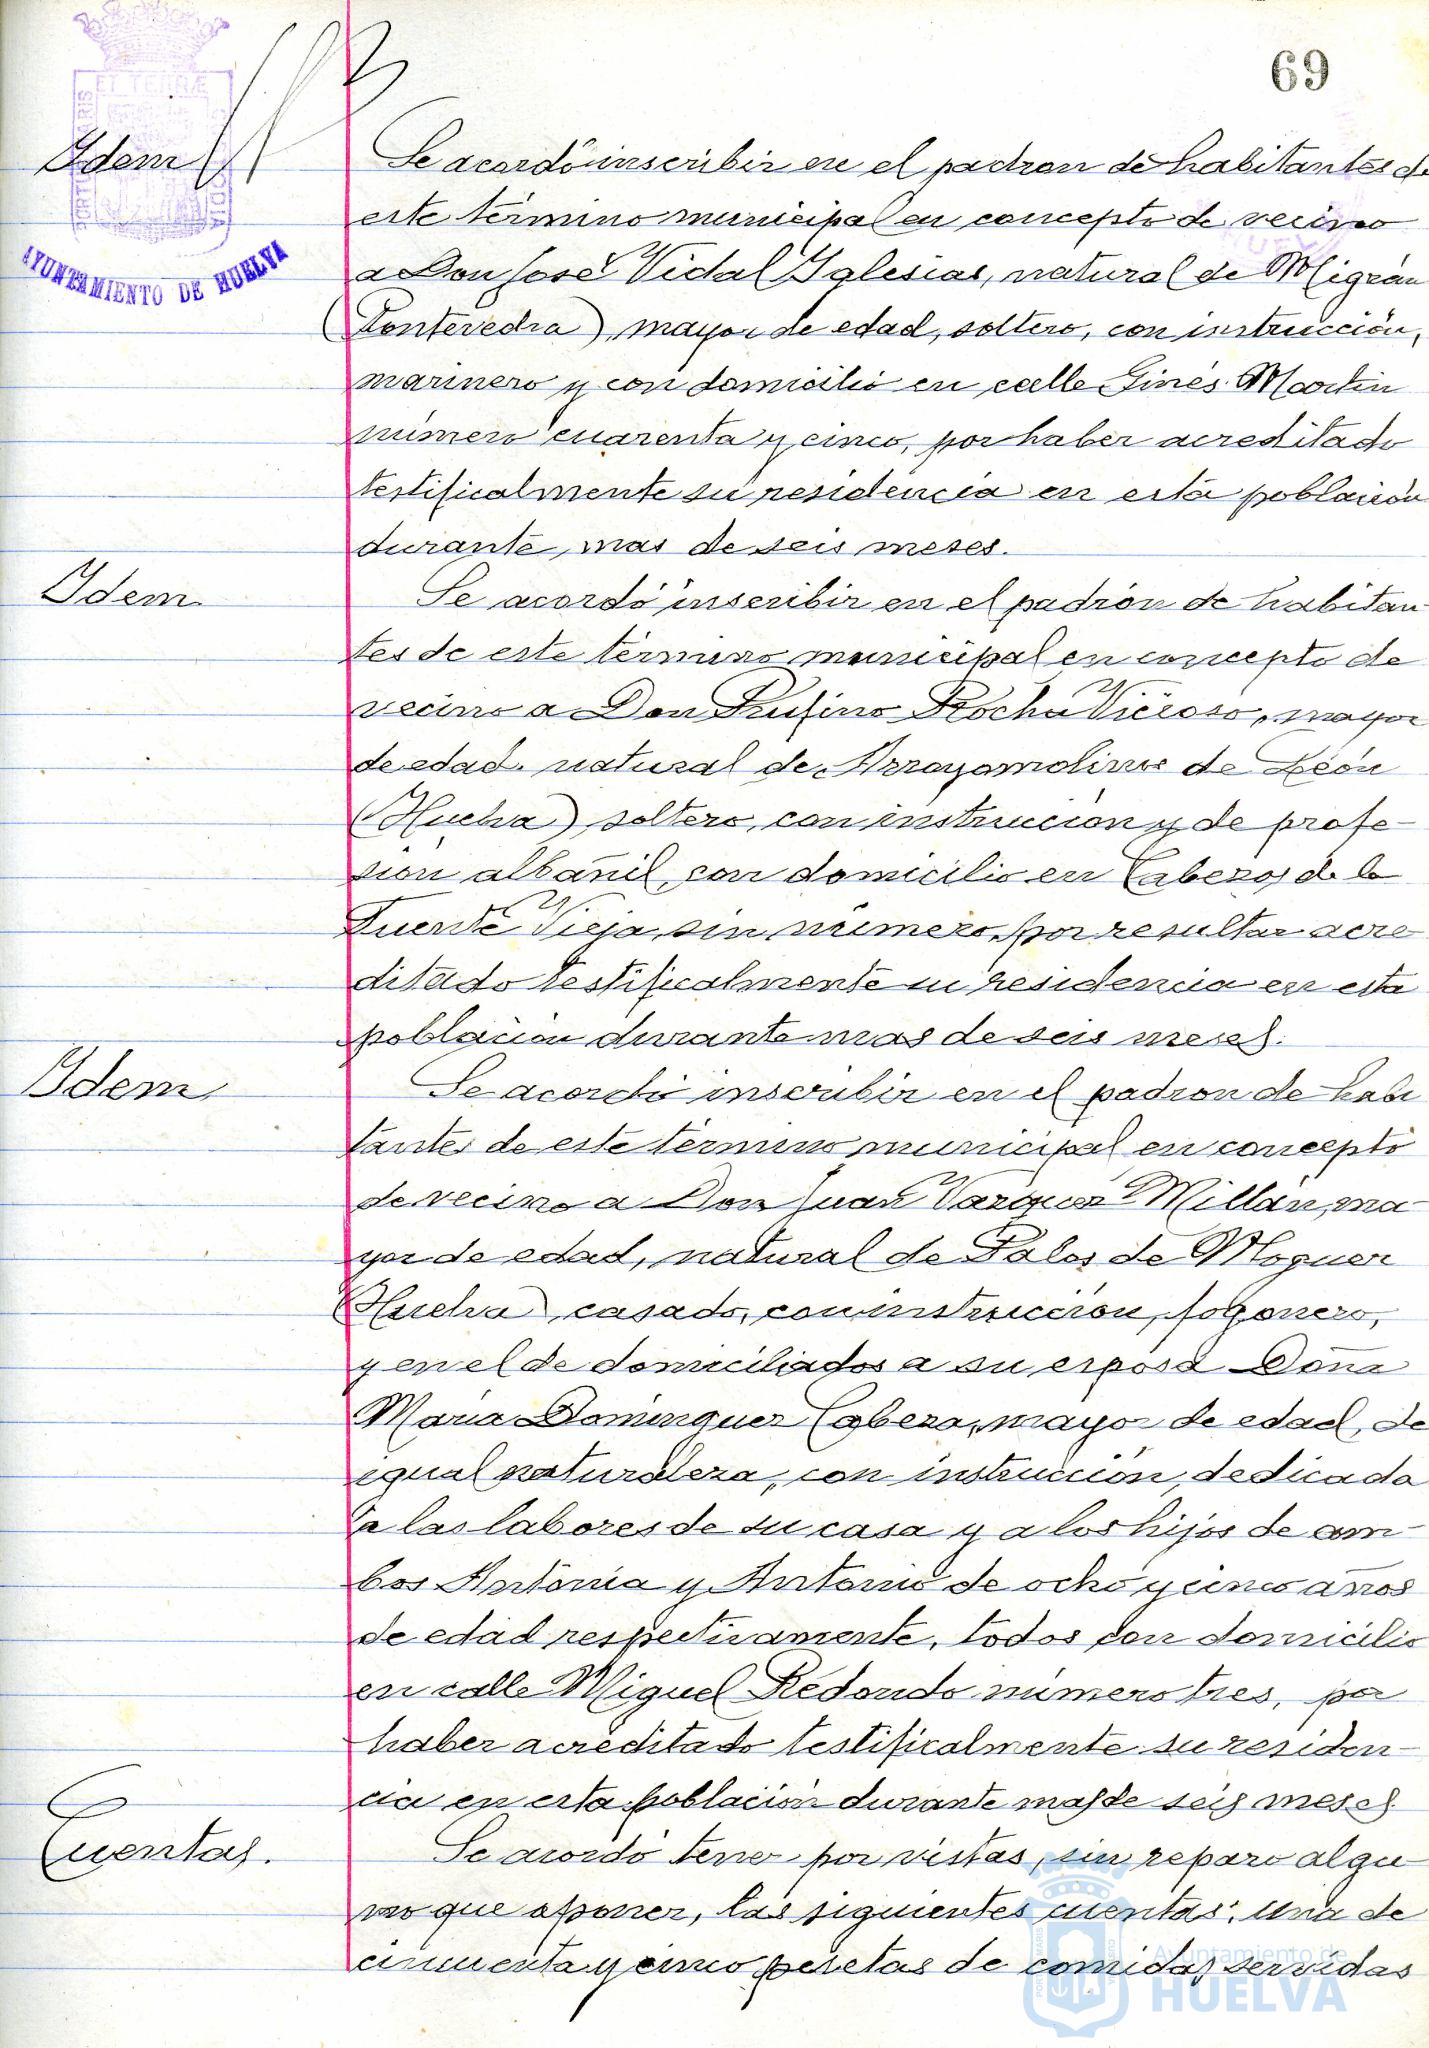 69
ET TERRAE
AYUNTAMIENTO DE HUELVA
Idem
Se acordó inscribir en el padron de habitantes de
este término municipal en concepto de vecino
a Don José Vidal Iglesias, natural de
(Pontevedra), mayor de edad, soltero, con instrucción,
marinero y con domicilio en calle Ginés Martin
número cuarenta y cinco, por haber acreditado
testificalmente su residencia en esta población
durante mas de seis meses.
Idem
Se acordó inscribir en el padrón de habitan-
tes de este término municipal en concepto de
vecino a Don Rufino Rocha Vicioso, mayor
de edad, natural de Arroyomolinos de León
(Huelva), soltero, con instrucción y de profe-
sion albañil, con domicilio en Cabezos de la
Fuente Vieja, sin número, por resultar acre
ditado testificalmente su residencia en esta
población durante mas de seis meses.
Idem
Se acordó inscribir en el padron de habi
tantes de este término municipal en concepto
de vecino a Don Juan Vazquez Millán, ma-
yor de edad, natural de Palos de Moguer
(Huelva), casado, con instrucción, fogonero,
y en el de domiciliados a su esposa Doña
Maria Dominguez Cabeza, mayor de edad, de
igual naturaleza, con instrucción, dedicada
a las labores de su casa y a los hijos de am-
bos Antonia y Antonio de ocho y cinco años
de edad respectivamente, todos con domicilio
en calle Miguel Redondo número tres, por
haber acreditado testificalmente su residen-
cia en esta población durante mas de seis meses
Cuentas.
Se acordó tener por vistas, sin reparo algu
no que oponer, las siguientes cuentas: Una de
cincuenta y cinco pesetas de comidas servidas
Ayuntamiento de
HUELVA